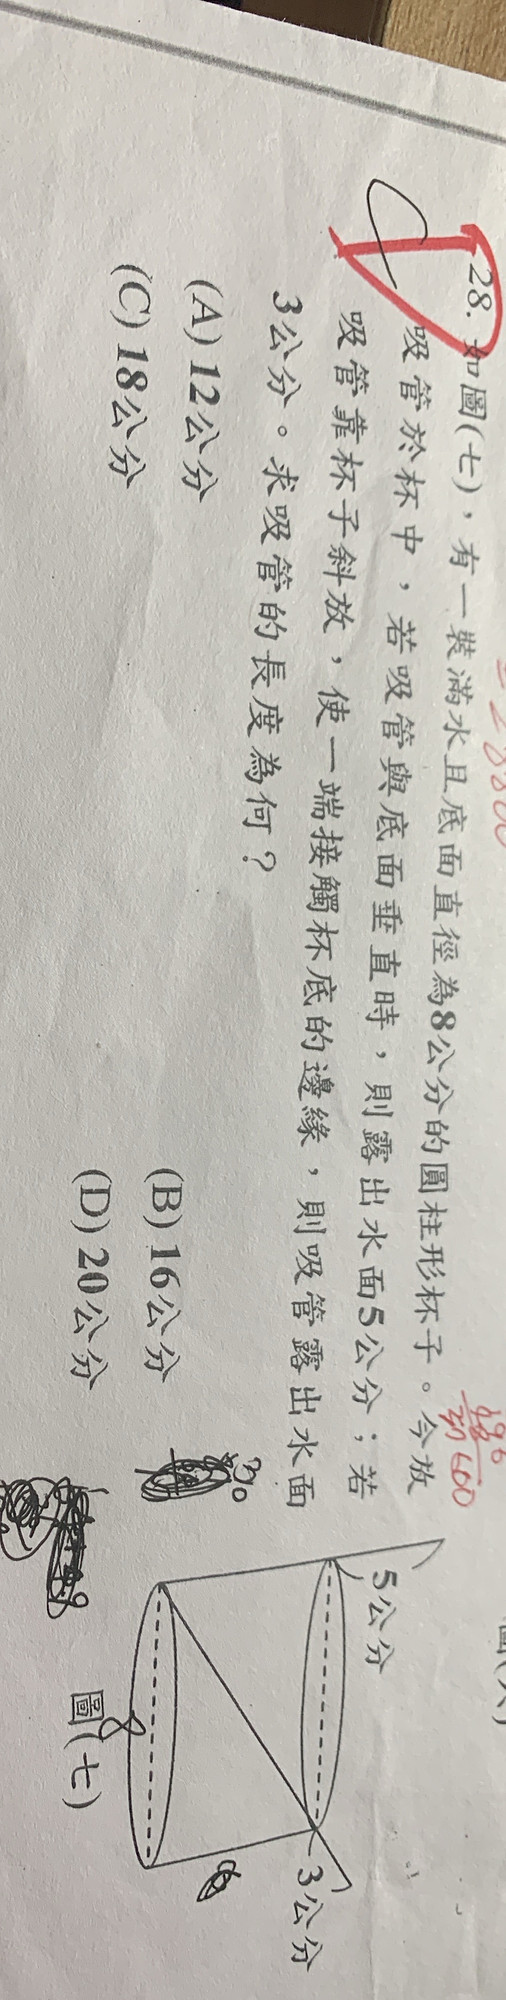 28. 如圖(七)，有一裝滿水且底面直徑為8公分的圓柱形杯子。今放
吸管於杯中，若吸管與底面垂直時，則露出水面5公分；若
吸管靠杯子斜放，使一端接觸杯底的邊緣，則吸管露出水面
3公分。求吸管的長度為何？
(A) 12公分
(B) 16公分
(C) 18公分
(D) 20公分
5公分
3公分
8
圖(七)